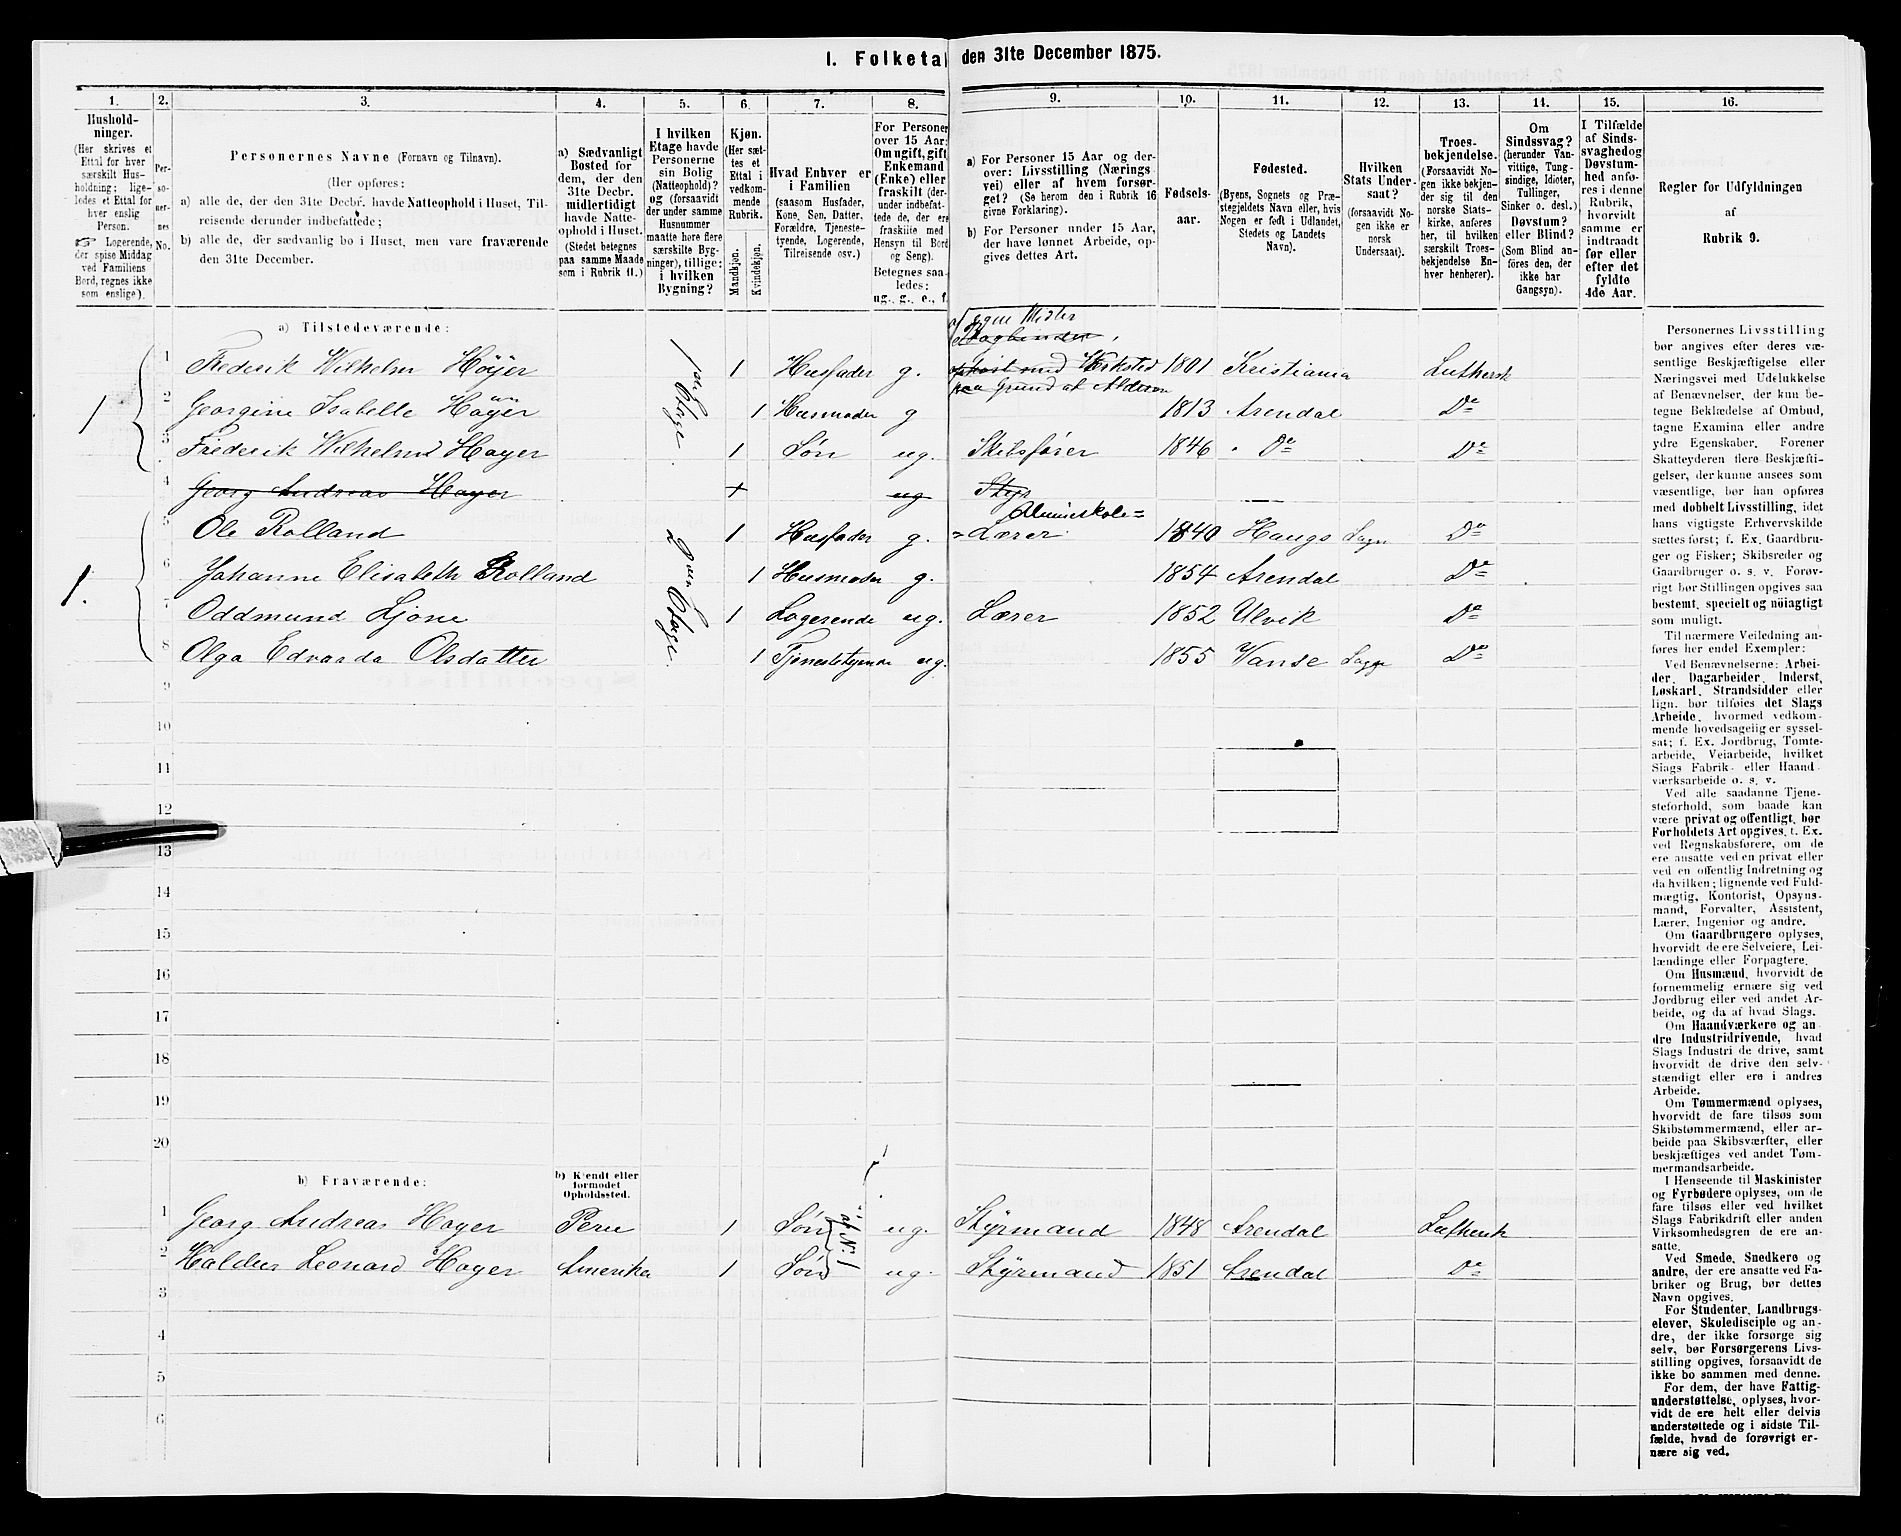 I. Folketal den 31te December 1875.
1. 2. 3. 4. 5. 6. 7. 8. 9. 10. 11. 12. 13. 14. 15. 16.
Hushold-
ninger.
(Her skrives et
Ettal for hver
særskilt Hus-
holdning; lige-
ledes et Ettal for
hver enslig
Person.
☞ Logerende,
der spise Middag
ved Familiens
Bord, regnes ikke
som enslige).
Per-
so-
ner-
nes
No.
Personernes Navne (Fornavn og Tilnavn).
(Her opføres:
a) alle de, der den 31te Decbr. havde Natteophold i Huset, Til-
reisende derunder indbefattede;
b) alle de, der sædvanlig bo i Huset, men vare fraværende
den 31te December.
a) Sædvanligt
Bosted for
dem, der den
31te Decbr.
midlertidigt
havde Natte-
ophold i Huset.
(Stedet betegnes
paa samme Maade
som i Rubrik 11.)
I hvilken
Etage havde
Personerne
sin Bolig
(Natteophold)?
og (forsaavidt
der under samme
Husnummer
maatte høre flere
særskilte Byg-
ninger), tillige:
i hvilken
Bygning?
Kjøn.
(Her sæt-
tes et
Ettal i
vedkom-
mende
Rubrik.
Mandkjøn.
Kvindekjøn.
Hvad Enhver er
i Familien
(saasom Husfader,
Kone, Søn, Datter,
Forældre, Tjeneste-
tyende, Logerende,
Tilreisende osv.)
For Personer
over 15 Aar:
Om ugift, gift,
Enkemand
(Enke) eller
fraskilt (der-
under indbefat-
tede de, der ere
fraskilte med
Hensyn til Bord
og Seng).
Betegnes saa-
ledes:
ug., g., e., f.
a) For Personer 15 Aar og der-
over: Livsstilling (Nærings-
vei) eller af hvem forsør-
get? (Se herom den i Rubrik 16
givne Forklaring).
b) For Personer under 15 Aar,
der have lønnet Arbeide, op-
gives dettes Art.
Fødsels-
aar.
Fødested.
(Byens, Sognets og Præ-
stegjeldets Navn eller, hvis
Nogen er født i Udlandet,
Stedets og Landets
Navn).
Hvilken
Stats Under-
saat?
(forsaavidt No-
gen ikke er
norsk
Undersaat).
Troes-
bekjendelse.
(Forsaavidt No-
gen ikke bekjen-
der sig til den
norske Stats-
kirke, anføres
her, til hvilken
særskilt Troes-
bekjendelse En-
hver henhører).
Om
Sindssvag?
(herunder Van-
vittige, Tung-
sindige, Idioter,
Tullinger,
Sinker o. desl.)
Døvstum?
eller Blind?
(Som Blind an-
føres den, der
ikke har
Gangsyn).
I Tilfælde
af Sinds-
svaghed og
Døvstum-
hed anfø-
res i denne
Rubrik,
hvorvidt
samme er
indtraadt
før eller
efter det
fyldte
4de Aar.
Regler for Udfyldningen
af
Rubrik 9.
a) Tilstedeværende:
egne Midler
Bogbinder,
1 1 Frederik Wilhelm Höyer 1ste Etage. 1 Husfader g. med Verksted 1801 Kristiania Luthersk
paa Grund af Alderen
2 Georgine Isabelle Höyer 1 Husmoder g 1813 Arendal Do
3 Frederik Wilhelm Høyer 1 Søn ug. Skibsfører 1846 Do Do
4 Georg Andreas Høyer + ug Styr
Almueskole=
1. 5 Ole Rolland 2den Etage. 1 Husfader g. =Lærer 1840 Haugs Sogn Do
6 Johanne Elisabeth Rolland 1 Husmoder g. 1854 Arendal Do
7 Oddmund Ljone 1 Logerende ug. Lærer 1852 Ulvik Do
8 Olga Edvarda Olsdatter 1 Tjenestetyende ug. 1855 Vanse Sogn Do
9
10
11
12
13
14
15
16
17
18
19
20
b) Fraværende:
b) Kjendt eller
formodet
Opholdssted.
1 Georg Andreas Høyer Peru 1 Søn af No 1 ug. Styrmand 1848 Arendal Luthersk
2 Leonard Høyer Amerika 1 Søn ug. Styrmand 1851 Arendal Do
3
4
5
6
Personernes Livsstilling
bør angives efter deres væ-
sentlige Beskjæftigelse eller
Næringsvei med Udelukkelse
af Benævnelser, der kun be-
tegne Beklædelse af Ombud,
tagne Examina eller andre
ydre Egenskaber. Forener
Skatteyderen flere Beskjæfti-
gelser, der kunne ansees som
væsentlige, bør han opføres
med dobbelt Livsstilling, idet
hans vigtigste Erhvervskilde
sættes først; f. Ex. Gaardbru-
ger og Fisker; Skibsreder og
Gaardbruger o. s. v. Forøv-
rigt bør Stillingen opgives saa
bestemt, specielt og nøiagtigt
som muligt.
Til nærmere Veiledning an-
føres her endel Exempler:
Ved Benævnelserne: Arbei-
der, Dagarbeider, Inderst,
Løskarl, Strandsidder eller
lign. bør tilføies det Slags
Arbeide, hvormed vedkom-
mende hovedsagelig er syssel-
sat; f. Ex. Jordbrug, Tomte-
arbeide, Veiarbeide, hvilket
Slags Fabrik- eller Haand-
værksarbeide o. s. v.
Ved alle saadanne Tjene-
steforhold, som baade kan
være privat og offentligt, bør
Forholdets Art opgives, t. Ex.
ved Regnskabsførere, om de
ere ansatte ved en privat eller
ved en offentlig Indretning og
da hvilken; lignende ved Fuld-
mægtig, Kontorist, Opsyns-
mand, Forvalter, Assistent,
Lærer, Ingeniør og andre.
Om Gaardbrugere oplyses,
hvorvidt de ere Selveiere, Lei-
lændinge eller Forpagtere.
Om Husmænd, hvorvidt de
fornemmelig ernære sig ved
Jordbrug eller ved andet Ar-
beide, og da af hvad Slags.
Om Haandværkere og an
dre Industridrivende, hvad
Slags Industri de drive, samt
hvorvidt de drive den selv-
stændigt eller ere i andres
Arbeide.
Om Tømmermænd oplyses,
hvorvidt de fare tilsøs som
Skibstømmermænd, eller ar-
beide paa Skibsværfter, eller
beskjæftiges ved andet Tøm-
mermandsarbeide.
I Henseende til Maskinister
og Fyrbødere oplyses, om de
fare tilsøs eller ved hvilket
Slags Fabrikdrift eller anden
Virksomhedsgren de ere an-
satte.
Ved Smede, Snedkere og
andre, der ere ansatte ved Fa-
briker og Brug, bør dettes
Navn opgives.
For Studenter, Landbrugs-
elever, Skoledisciple og an-
dre, der ikke forsørge sig
selv, bør Forsørgerens Livs-
stilling opgives, forsaavidt de
ikke bo sammen med denne.
For dem, der have Fattig-
understøttelse, oplyses, hvor-
vidt de ere helt eller delvis
understøttede og i sidste Til-
fælde, hvad de forøvrigt er-
nære sig ved.